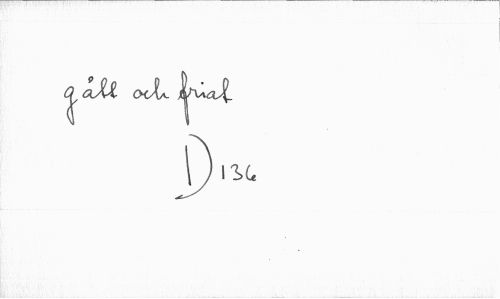 gått och friat
D 136